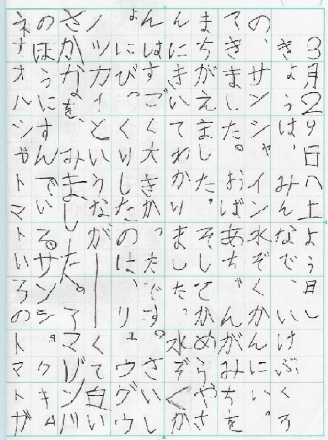 3月29日(土よう日)
きょうは、みんなで、いけぶくろ
の、サンシャイン水ぞくかんにい
てきました。おばあちゃんがみちを
まちがえました。そしてかめらやさ
んにきいてわかりました。水ぞくか
んはすごく大きかったです。さい
しょにびっくりしたのは、リュウグウ
ノツカイというながーーくて白い
さかなを、みました。アマゾン川
のほうにすんでいる。サンショクキム
ネオオハシやトマトいろのトマトガ